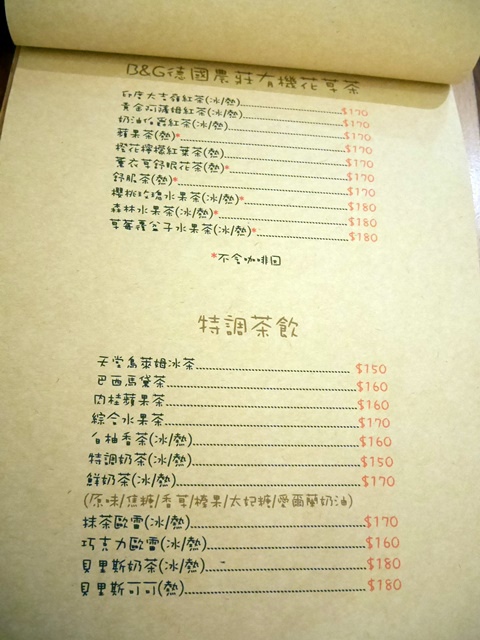 B&G德國農莊有機花草茶
印度大吉嶺紅茶(冰/熱) $170
黃金阿薩姆紅茶(冰/熱) $170
奶油伯爵紅茶(冰/熱) $170
蘋果茶(熱)* $170
橙花檸檬紅葉茶(熱) $170
薰衣草舒眠花茶(熱)* $170
舒服茶(熱)* $170
櫻桃玫瑰水果茶(冰/熱)* $180
森林水果茶(冰/熱)* $180
草莓覆盆子水果茶(冰/熱)* $180
*不含咖啡因
特調茶飲
天堂烏萊姆冰茶 $150
巴西馬黛茶 $160
肉桂蘋果茶 $160
綜合水果茶 $170
白柚香茶(冰/熱) $160
特調奶茶(冰/熱) $150
鮮奶茶(冰/熱) $170
(原味/焦糖/香草/榛果/太妃糖/愛爾蘭奶油)
抹茶歐蕾(冰/熱) $170
巧克力歐蕾(冰/熱) $160
貝里斯奶茶(冰/熱) $180
貝里斯可可(熱) $180